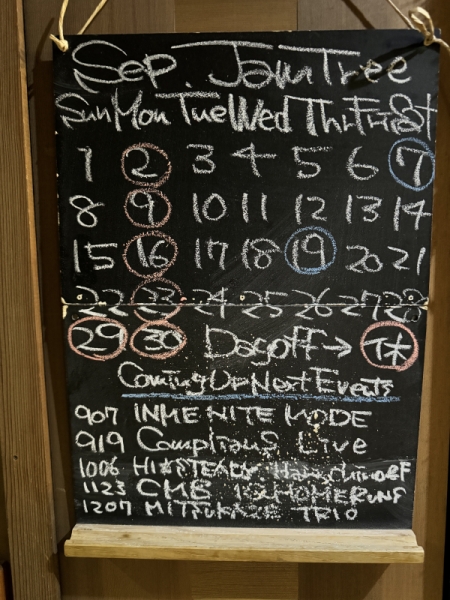 Sep. JamTree
Sun Mon Tue Wed Thr Fri Sat
1 2 3 4 5 6 7
8 9 10 11 12 13 14
15 16 17 18 19 20 21
22 23 24 25 26 27 28
29 30 Dayoff→ 休
Coming Up Next Events
907 INME NITE MODE
919 Live
1006
1123 CMB HOMERUNS
1207 MITSUKAZE TRIO